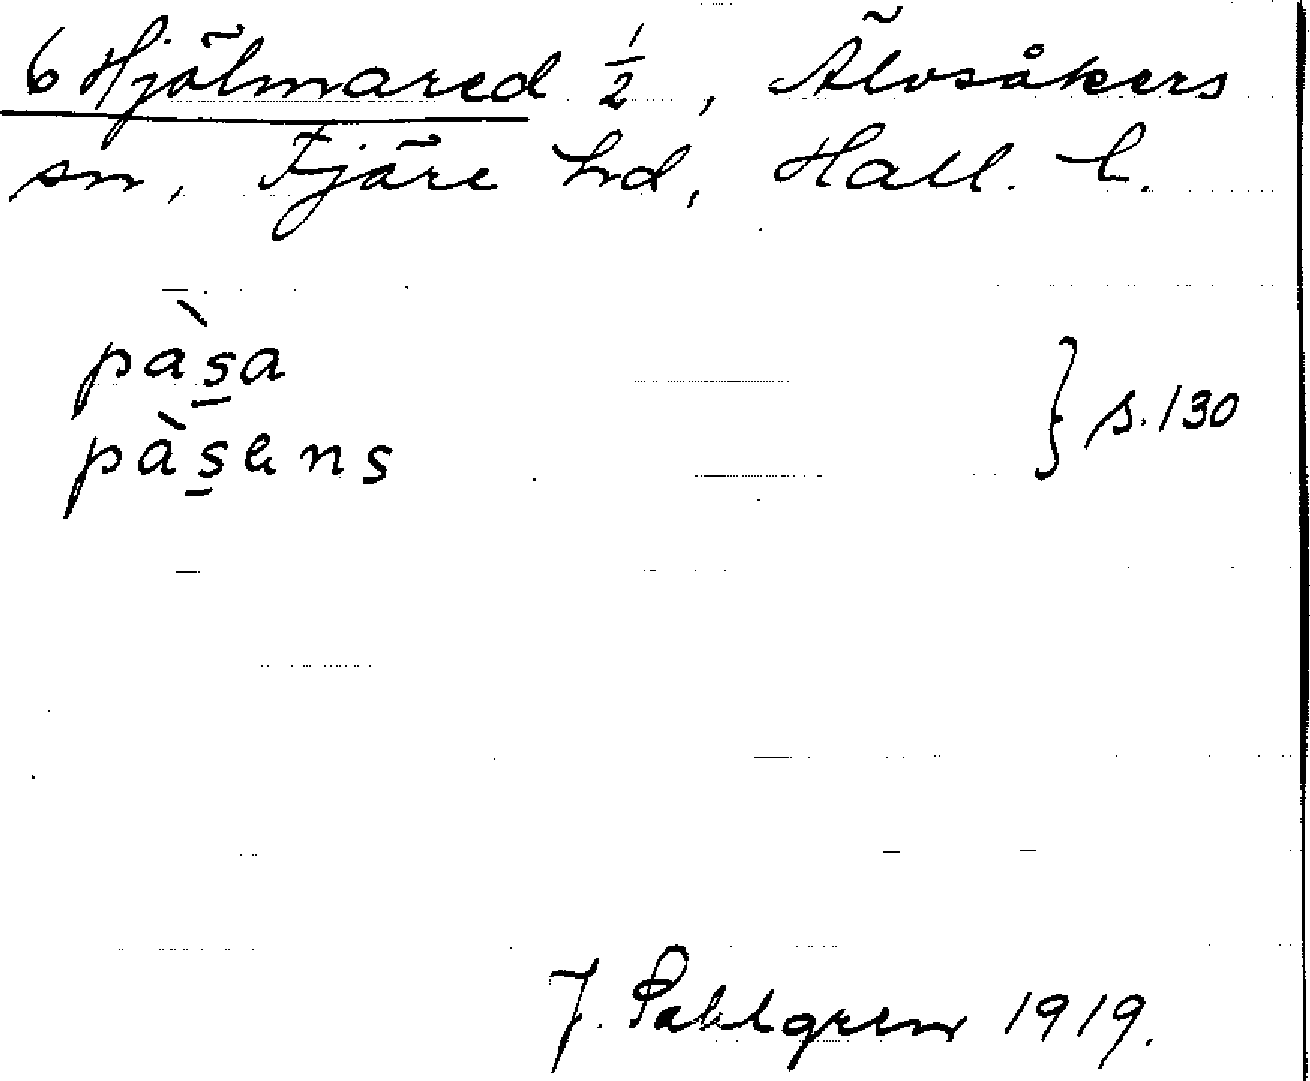 6 Hjälmared 1/2, Älvsåkers
sn, Fjäre hd, Hall. l.
pàs̠a
pàs̠ɛns } s. 130
J. Sahlgren 1919.